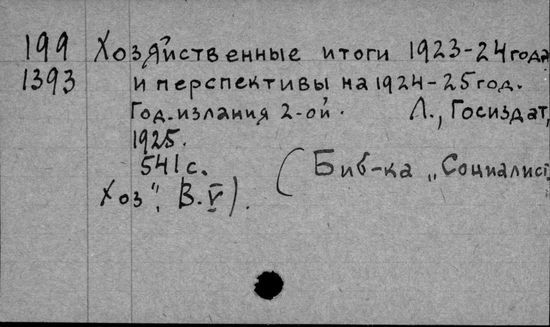 199 Хозяйственные итоги 1923-24 года
1393 и перспективы на 1924-25 год.
Год излания 2-ой. Л., Госиздат,
1925.
541 с. (Биб-ка „Социалист
Хоз", В. V).